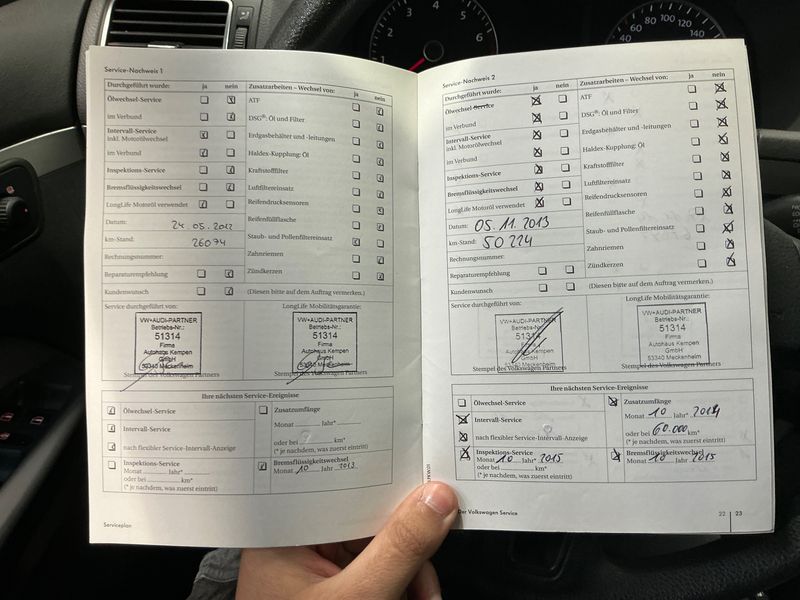 1 2 3 4 5 6
40 60 80 100 120 140
Service-Nachweis 1
Durchgeführt wurde: ja nein
Ölwechsel-Service
im Verbund
Intervall-Service
inkl. Motorölwechsel
im Verbund
Inspektions-Service
Bremsflüssigkeitswechsel
LongLife Motoröl verwendet
Datum: 24.05.2012
km-Stand: 26074
Rechnungsnummer:
Reparaturempfehlung
Kundenwunsch
Zusatzarbeiten – Wechsel von: ja nein
ATF
DSG®: Öl und Filter
Erdgasbehälter und -leitungen
Haldex-Kupplung: Öl
Kraftstofffilter
Luftfiltereinsatz
Reifendrucksensoren
Reifenfüllflasche
Staub- und Pollenfiltereinsatz
Zahnriemen
Zündkerzen
(Diesen bitte auf dem Auftrag vermerken.)
Service durchgeführt von:
VW+AUDI-PARTNER
Betriebs-Nr.:
51314
Firma
Autohaus Kempen
GmbH
53340 Meckenheim
Stempel des Volkswagen Partners
LongLife Mobilitätsgarantie:
VW+AUDI-PARTNER
Betriebs-Nr.:
51314
Firma
Autohaus Kempen
GmbH
53340 Meckenheim
Stempel des Volkswagen Partners
Ihre nächsten Service-Ereignisse
Ölwechsel-Service
Intervall-Service
nach flexibler Service-Intervall-Anzeige
Inspektions-Service
Monat Jahr
oder bei km*
(* je nachdem, was zuerst eintritt)
Zusatzumfänge
Monat Jahr*
oder bei km*
(* je nachdem, was zuerst eintritt)
Bremsflüssigkeitswechsel
Monat 10 Jahr 2013
Serviceplan
Service-Nachweis 2
Durchgeführt wurde: ja nein
Ölwechsel-Service
im Verbund
Intervall-Service
inkl. Motorölwechsel
im Verbund
Inspektions-Service
Bremsflüssigkeitswechsel
LongLife Motoröl verwendet
Datum: 05.11.2013
km-Stand: 50224
Rechnungsnummer:
Reparaturempfehlung
Kundenwunsch
Zusatzarbeiten – Wechsel von: ja nein
ATF
DSG®: Öl und Filter
Erdgasbehälter und -leitungen
Haldex-Kupplung: Öl
Kraftstofffilter
Luftfiltereinsatz
Reifendrucksensoren
Reifenfüllflasche
Staub- und Pollenfiltereinsatz
Zahnriemen
Zündkerzen
(Diesen bitte auf dem Auftrag vermerken.)
Service durchgeführt von:
VW+AUDI-PARTNER
Betriebs-Nr.:
51314
Firma
Autohaus Kempen
GmbH
53340 Meckenheim
Stempel des Volkswagen Partners
LongLife Mobilitätsgarantie:
VW+AUDI-PARTNER
Betriebs-Nr.:
51314
Firma
Autohaus Kempen
GmbH
53340 Meckenheim
Stempel des Volkswagen Partners
Ihre nächsten Service-Ereignisse
Ölwechsel-Service
Intervall-Service
nach flexibler Service-Intervall-Anzeige
Inspektions-Service
Monat 10 Jahr 2015
oder bei km*
(* je nachdem, was zuerst eintritt)
Zusatzumfänge
Monat 10 Jahr* 2014
oder bei 60.000 km*
(* je nachdem, was zuerst eintritt)
Bremsflüssigkeitswechsel
Monat 10 Jahr 2015
Der Volkswagen Service
22 23